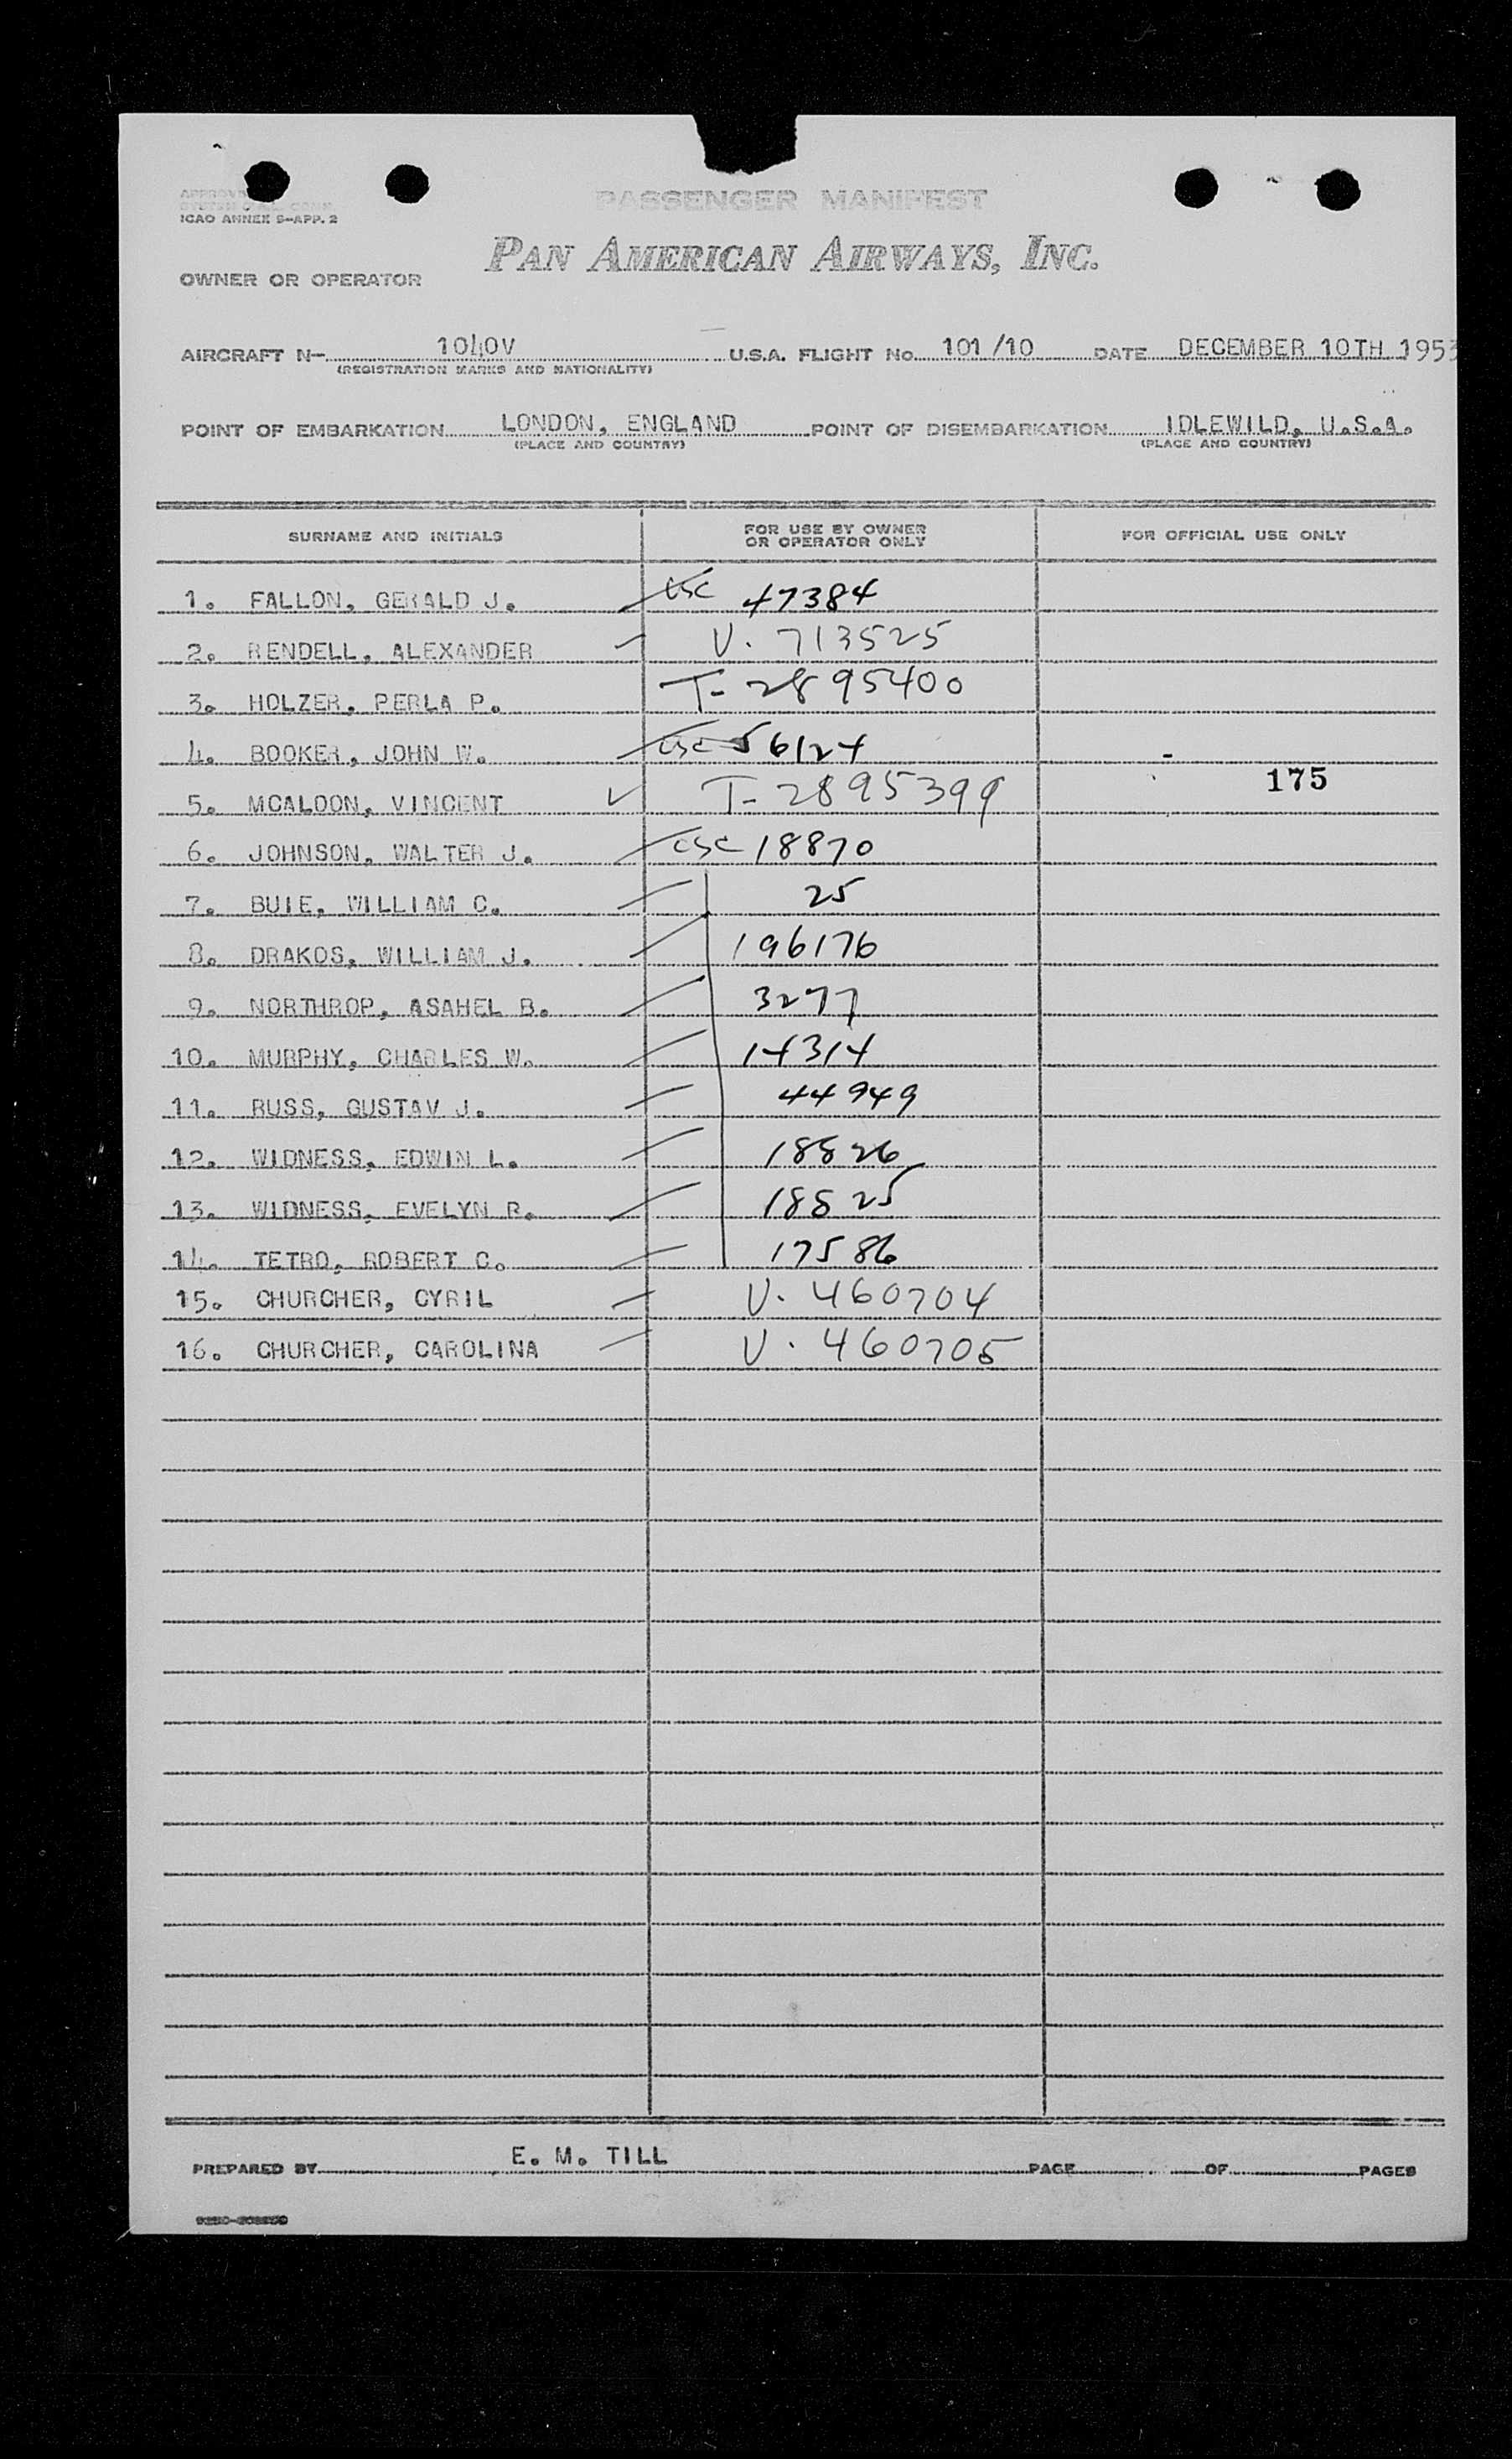 PASSENGER MANIFEST
ICAO ANNEX 9-APP. 2
PAN AMERICAN AIRWAYS, INC.
OWNER OR OPERATOR
AIRCRAFT N- 1040V U.S.A. FLIGHT No. 101/10 DATE DECEMBER 10TH 1953
(REGISTRATION MARKS AND NATIONALITY)
POINT OF EMBARKATION LONDON, ENGLAND POINT OF DISEMBARKATION IDLEWILD, U.S.A.
(PLACE AND COUNTRY) (PLACE AND COUNTRY)
SURNAME AND INITIALS FOR USE BY OWNER OR OPERATOR ONLY FOR OFFICIAL USE ONLY
1. FALLON, GERALD J. USC 47384
2. RENDELL, ALEXANDER V. 713525
3. HOLZER, PERLA P. T-2895400
4. BOOKER, JOHN W. USC 56124
175
5. MCALOON, VINCENT T-2895399
6. JOHNSON, WALTER J. USC 18870
7. BUIE, WILLIAM C. 25
8. DRAKOS, WILLIAM J. 196176
9. NORTHROP, ASAHEL B. 3277
10. MURPHY, CHARLES W. 14314
11. RUSS, GUSTAV J. 44949
12. WIDNESS, EDWIN L. 18826
13. WIDNESS, EVELYN R. 18825
14. TETRO, ROBERT C. 17586
15. CHURCHER, CYRIL V. 460704
16. CHURCHER, CAROLINA V. 460705
PREPARED BY E. M. TILL PAGE OF PAGES